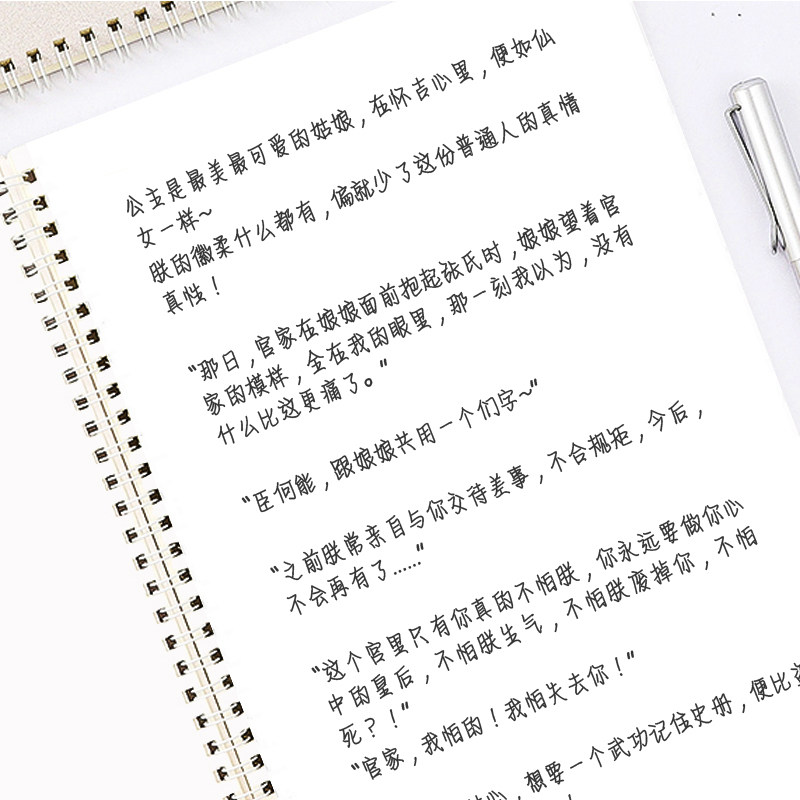 公主是最美最可爱的姑娘，在怀吉心里，便如仙
女一样~
朕的徽柔什么都有，偏就少了这份普通人的真情
真性！
"那日，官家在娘娘面前抱起张氏时，娘娘望着官
家的模样，全在我的眼里，那一刻我以为，没有
什么比这更痛了。"
"臣何能，跟娘娘共用一个们字~"
"之前朕常亲自与你交待差事，不合规矩，今后，
不会再有了......"
"这个宫里只有你真的不怕朕，你永远要做你心
中的皇后，不怕朕生气，不怕朕废掉你，不怕
死？！"
"官家，我怕的！我怕失去你！"
心，想要一个武功记住史册，便比